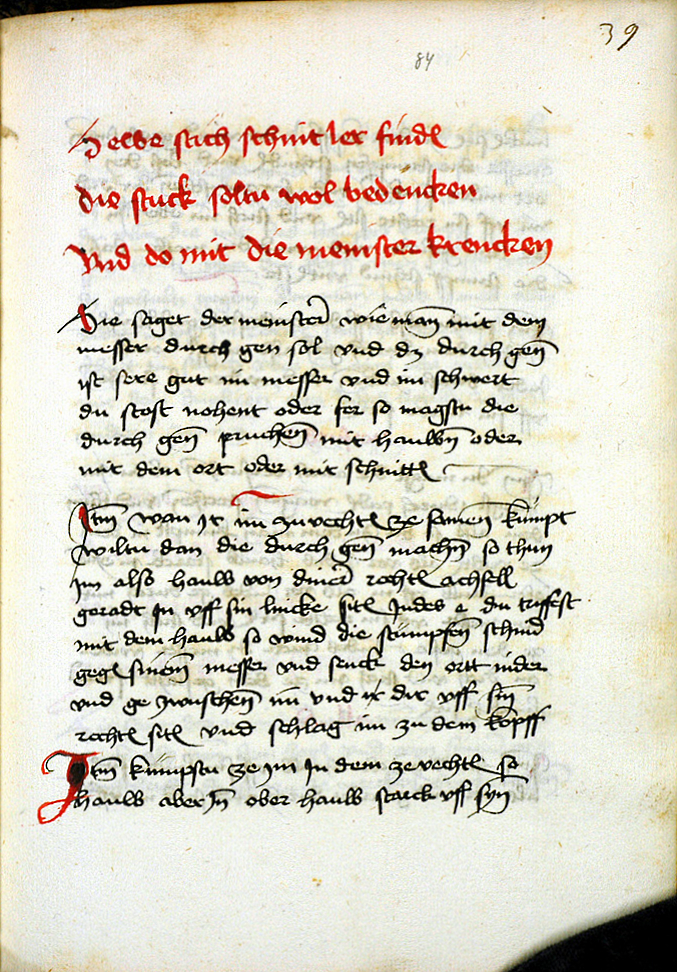 39
84
Hewe stich schnit ler find
die stuck soltu wol bedencken
Vnd do mit die meinster krencken
Hie saget der meinster wie man mit dem
messer durch gen sol vnd dz durch gen
ist sere gut im messer vnd im schwert
du stost nohent oder fer so magstu die
durch gen pruchen mit hauwen oder
mit dem ort oder mit schnitt
Itm wan ir im zu vecht ze samen kumpt
wiltu dan die durch gen machn so thun
im also hauw von diner recht achsell
geradt in vff sin lincke sit Indes e du triffest
mit dem hauw so wind die stumpfen schnid
geg sinem messer vnd senck den ortt nider
vnd ge zwuschen im vnd ir dir vff sin
recht sit vnd schlag im zu dem kopff
Itm kumpstu ze im In dem ze vecht so
hauw aber jn ober hauw starck vff syn